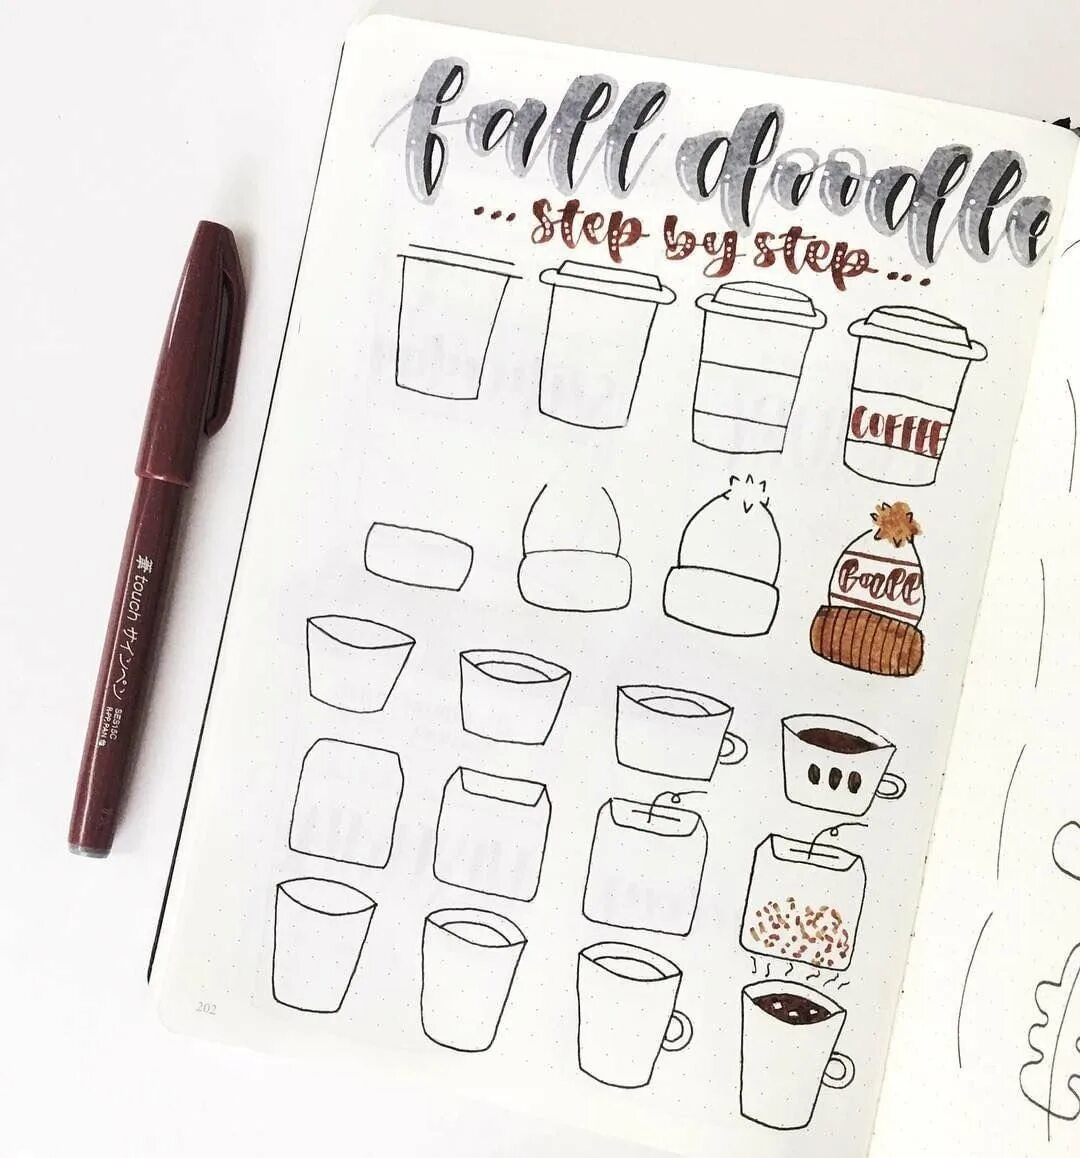 fall doodle
... step by step ...
COFFEE
筆touch サインペン SES15C
202